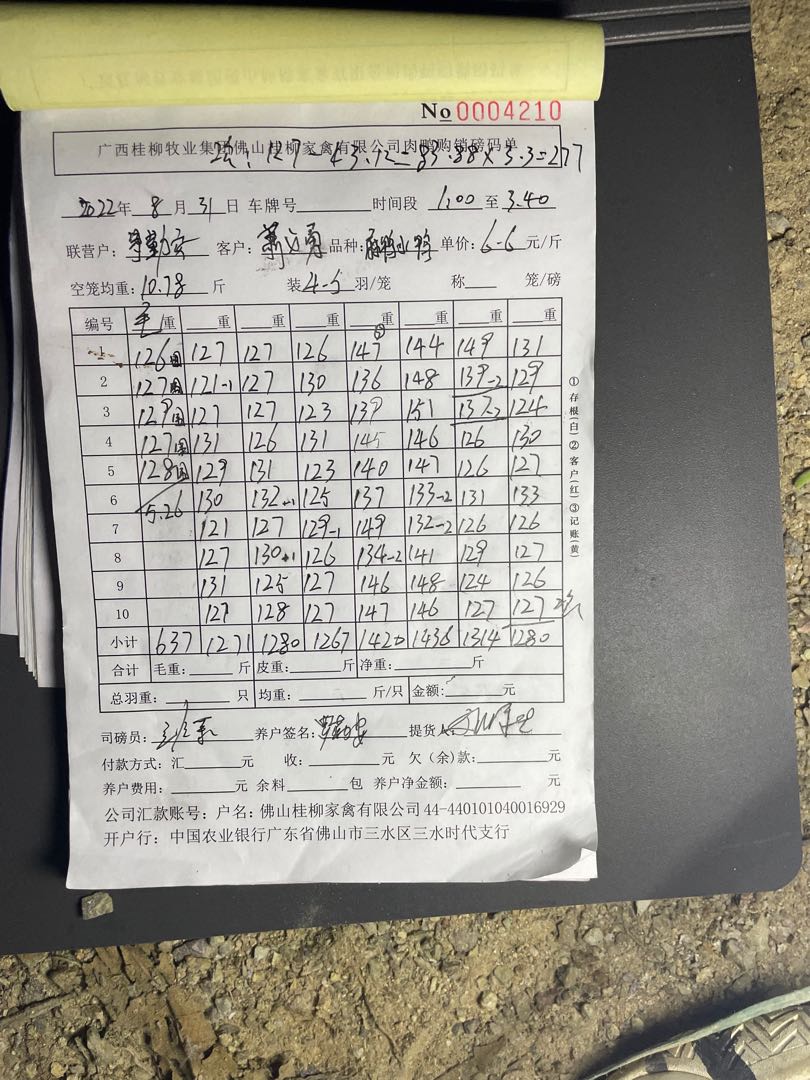 No 0004210
广西桂柳牧业集团佛山桂柳家禽有限公司肉鸭购销磅码单
127-43.12=83.88×3.3=277
2022年 8 月 31 日 车牌号 时间段 1.00 至 3.40
联营户: 客户: 品种: 单价: 6-6 元/斤
空笼均重: 10.78 斤 装 4-5 羽/笼 称 笼/磅
编号 毛重 重 重 重 重 重 重 重
1 126 127 127 126 147 144 149 131
2 127 121-1 127 130 136 148 139-2 129
3 129 127 127 123 139 151 137-2 124
4 127 131 126 131 145 146 126 130
5 128 129 131 123 140 147 126 127
6 5.26 130 132+1 125 137 133-2 131 133
7 121 127 129-1 149 132-2 126 126
8 127 130+1 126 134-2 141 129 127
9 131 125 127 146 148 124 126
10 127 128 127 147 146 127 127
小计 637 1271 1280 1267 1420 1436 1314 1280
合计 毛重: 斤 皮重: 斤 净重: 斤
总羽重: 只 均重: 斤/只 金额: 元
司磅员: 养户签名: 提货人
付款方式: 汇 元 收: 元 欠(余)款: 元
养户费用: 元 余料 包 养户净金额: 元
公司汇款账号: 户名: 佛山桂柳家禽有限公司 44-440101040016929
开户行: 中国农业银行广东省佛山市三水区三水时代支行
①存根(白)②客户(红)③记账(黄)